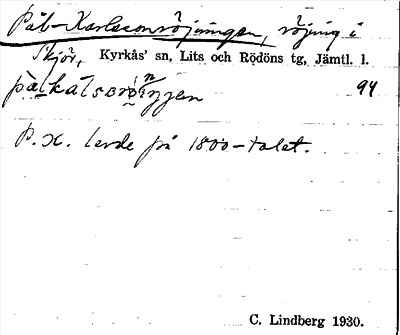 Pål-Karlssonröjningen, röjning i
Skjör, Kyrkås' sn, Lits och Rödöns tg, Jämtl. l.
94
P. K. levde på 1800-talet.
C. Lindberg 1930.